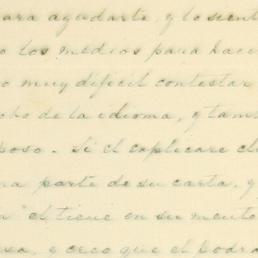 para ayudarte, y lo sient
o los medios para hacer
o muy dificil contestar
cho de la idioma, y tam
poso. Si el explicare cl
na parte de su carta, y
el tiene en su mente
sa, y creo que el podra